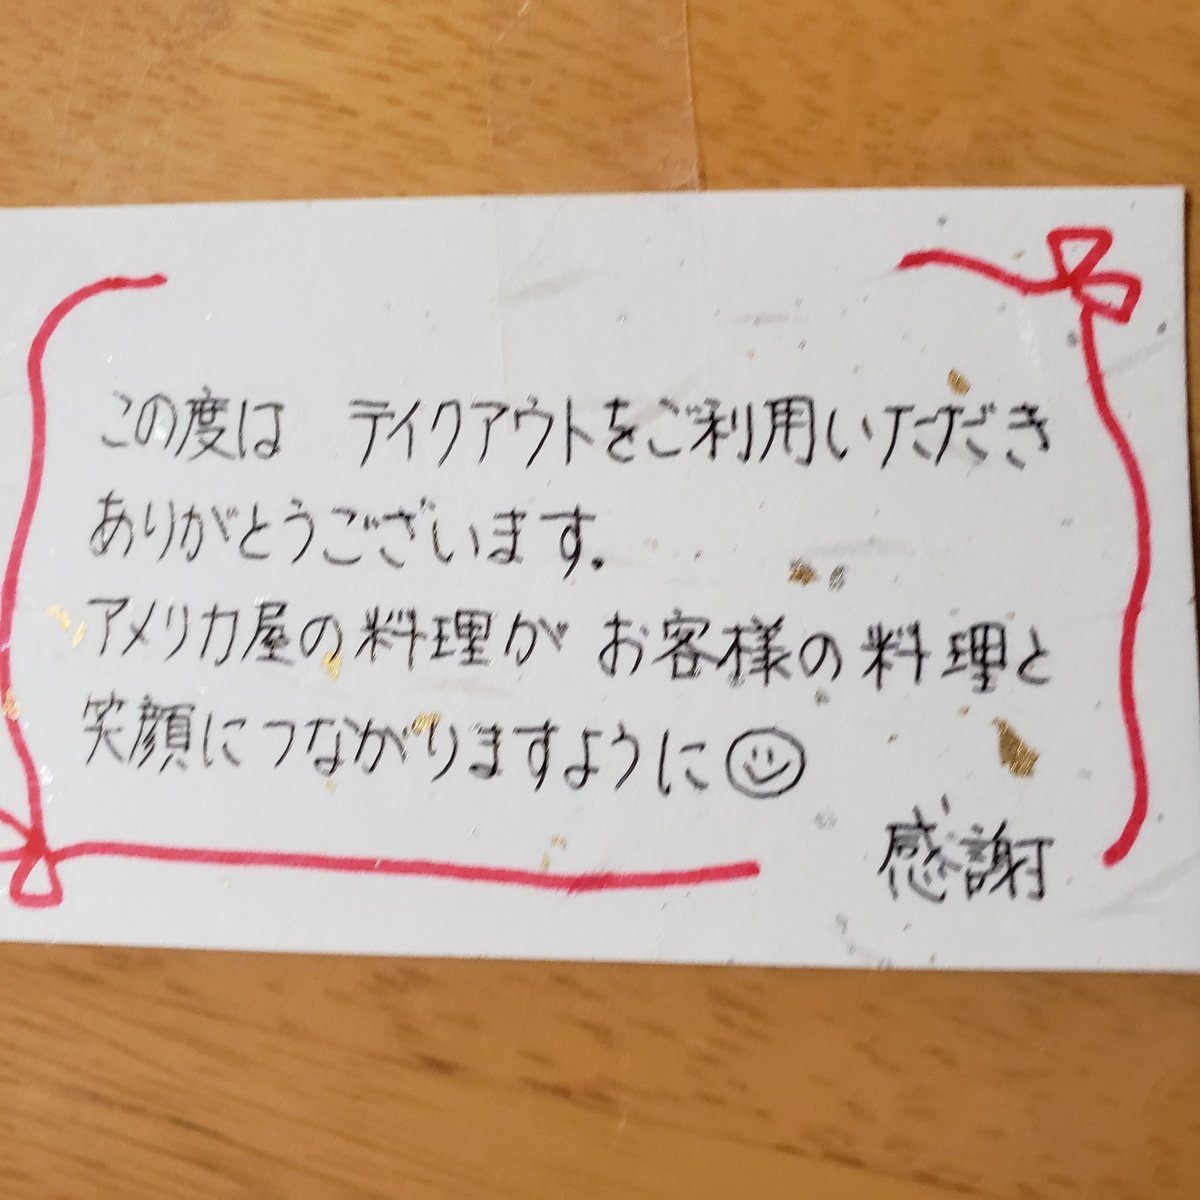 この度は テイクアウトをご利用いただき
ありがとうございます.
アメリカ屋の料理が お客様の料理と
笑顔につながりますように
感謝